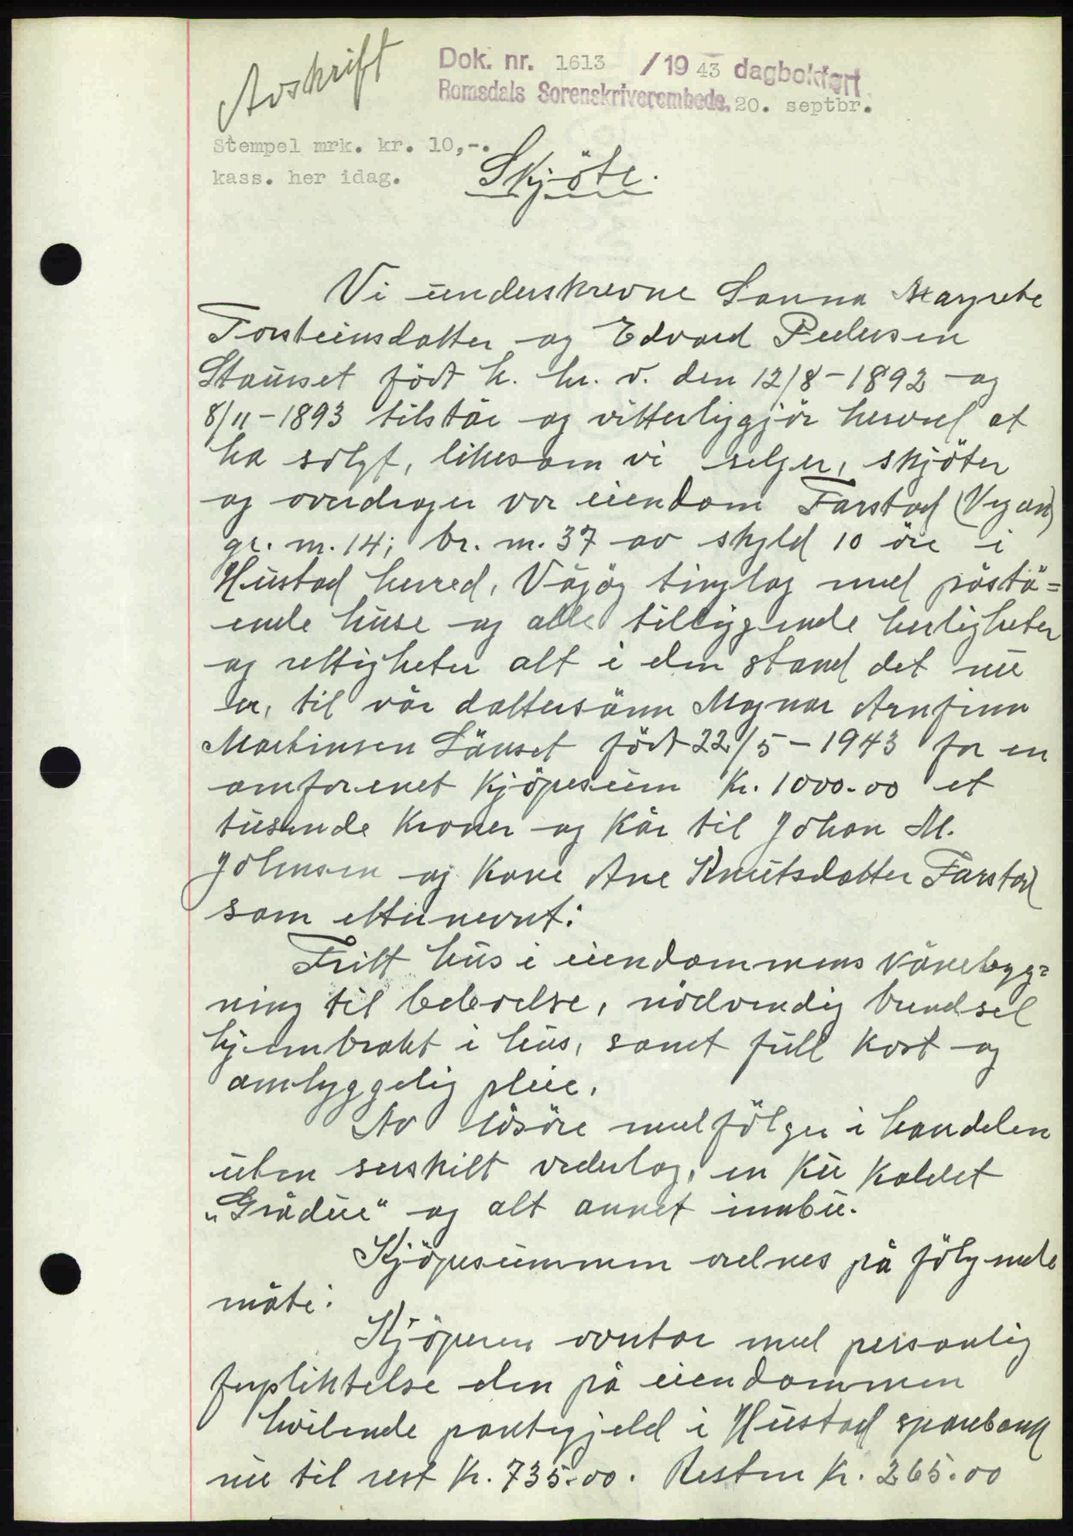 Avskrift
Dok. nr. 1613 / 1943 dagbokført
Romsdals Sorenskriverembede. 20. septbr.
Stempel mrk. kr. 10,-.
kass. her idag.
Skjöte.
Vi underskrevne Sanna Margrete
Torsteinsdatter og Edvard Pedersen
Stauset född h. hv. v. den 12/8-1892 og
8/11-1893 tilstår og vitterliggjör herved at
ha solgt, likesom vi selger, skjöter
og overdrager vor eiendom Farstad
gr. nr. 14; br. nr. 37 av skyld 10 öre i
Hustad herred, Vågöy tinglag med påstå=
ende huse og alle tilliggende herligheter
og rettigheter alt i den stand det nu
er, til vår dattersönn Magnar Arnfinn
Martinsen född 22/5-1943 for en
omforenet kjöpesum kr. 1000.00 et
tusende kroner og kår til Johan M.
Johnsen og kone Ane Knutsdatter Farstad
som etternevnt:
Fritt hus i eiendommens vånebygg=
ning til beboelse, nödvendig brendsel
hjembrakt i hus, samt full kost og
omhyggelig pleie.
Av lösöre medfölger i handelen
uten serskilt vederlag, en ku kaldet
„Grådue" og alt annet innbu.
Kjöpesummen ordnes på fölgende
måte:
Kjöperen overtar med personlig
forpliktelse den på eiendommen
hvilende pantegjeld i Hustad sparebank
nu til rest kr. 735.00. Resten kr. 265.00